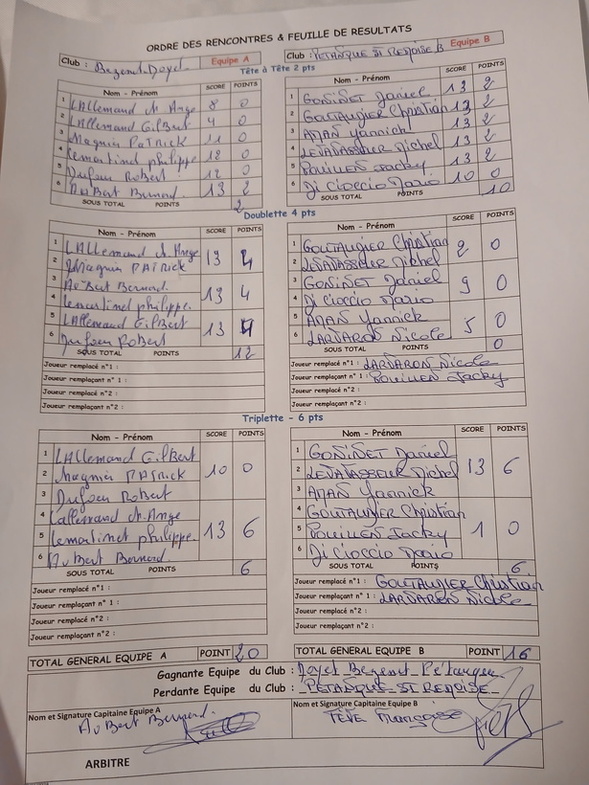 ORDRE DES RENCONTRES & FEUILLE DE RESULTATS
Club : Bezenet-Doyet Equipe A
Club : PETANQUE ST REMOISE B Equipe B
Tête à Tête 2 pts
Nom - Prénom SCORE POINTS
1 LAllemand M. Ange 8 0
2 LAllemand GilBert 4 0
3 Magnin PATRICK 11 0
4 Lemartinel philippe 12 0
5 Dufour Robert 12 0
6 AuBert Bernard. 13 2
SOUS TOTAL POINTS 2
Nom - Prénom SCORE POINTS
1 GONINET Daniel 13 2
2 GOUTAUDIER Christian 13 2
3 Yannick 13 2
4 LEVAVASSEUR Michel 13 2
5 Jacky 13 2
6 Di Cioccio Dario 10 0
SOUS TOTAL POINTS 10
Doublette 4 pts
Nom - Prénom SCORE POINTS
1 LAllemand M. Ange
2 Magnin PATRICK 13 4
3 AuBert Bernard.
4 Lemartinel philippe. 13 4
5 LAllemand GilBert
6 Dufour Robert 13 4
SOUS TOTAL POINTS 12
Joueur remplacé n°1 :
Joueur remplaçant n°1 :
Joueur remplacé n°2 :
Joueur remplaçant n°2 :
Nom - Prénom SCORE POINTS
1 GOUTAUDIER Christian
2 LEVAVASSEUR Michel 2 0
3 GONINET Daniel
4 Di Cioccio Dario 9 0
5 Yannick
6 LARDARON Nicole 5 0
SOUS TOTAL POINTS 0
Joueur remplacé n°1 : LARDARON Nicole
Joueur remplaçant n°1 : Jacky
Joueur remplacé n°2 :
Joueur remplaçant n°2 :
Triplette - 6 pts
Nom - Prénom SCORE POINTS
1 LAllemand GilBert
2 Magnin PATRICK 10 0
3 Dufour Robert
4 Lallemand M. Ange
5 Lemartinel philippe 13 6
6 AuBert Bernard.
SOUS TOTAL POINTS 6
Joueur remplacé n°1 :
Joueur remplaçant n°1 :
Joueur remplacé n°2 :
Joueur remplaçant n°2 :
Nom - Prénom SCORE POINTS
1 GONINET Daniel
2 LEVAVASSEUR Michel 13 6
3 Yannick
4 GOUTAUDIER Christian
5 Jacky 1 0
6 Di Cioccio Dario
SOUS TOTAL POINTS 6
Joueur remplacé n°1 : GOUTAUDIER Christian
Joueur remplaçant n°1 : LARDARON Nicole
Joueur remplacé n°2 :
Joueur remplaçant n°2 :
TOTAL GENERAL EQUIPE A POINT 20
TOTAL GENERAL EQUIPE B POINT 16
Gagnante Equipe du Club : Doyet Bezenet Petanque
Perdante Equipe du Club : PETANQUE ST REMOISE
Nom et Signature Capitaine Equipe A
AuBert Bernard.
Nom et Signature Capitaine Equipe B
TÈVE Françoise
ARBITRE